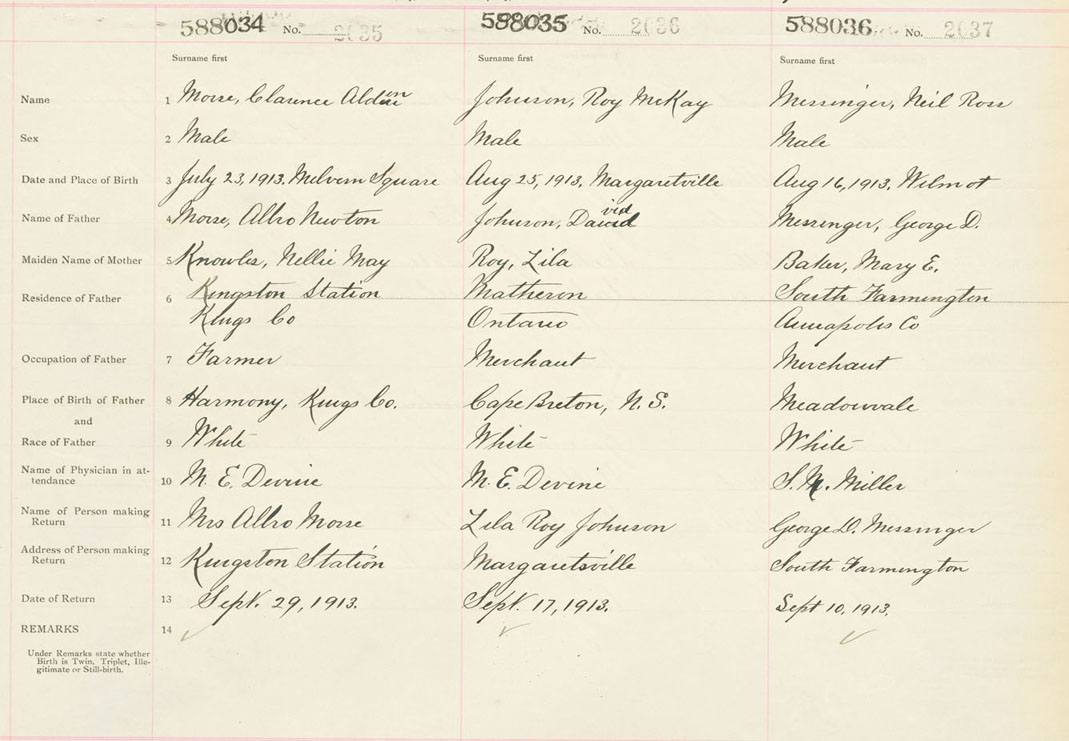 588034 No. 2035 588035 No. 2036 588036 No. 2037
Surname first Surname first Surname first
Name 1 Morse, Clarence Alden Johnson, Roy McKay Messinger, Neil Ross
Sex 2 Male Male Male
Date and Place of Birth 3 July 23, 1913. Melvern Square Aug 25, 1913. Margaretville Aug 16, 1913. Wilmot
Name of Father 4 Morse, Albro Newton Johnson, David Messinger, George D.
Maiden Name of Mother 5 Knowles, Nellie May Roy, Lila Baker, Mary E.
Residence of Father 6 Kingston Station Matheson South Farmington
Kings Co Ontario Annapolis Co
Occupation of Father 7 Farmer Merchant Merchant
Place of Birth of Father 8 Harmony, Kings Co. Cape Breton, N.S. Meadowvale
and
Race of Father 9 White White White
Name of Physician in at-
tendance 10 M. E. Devine M. E. Devine S. N. Miller
Name of Person making
Return 11 Mrs Albro Morse Lila Roy Johnson George D. Messinger
Address of Person making
Return 12 Kingston Station Margaretsville South Farmington
Date of Return 13 Sept. 29, 1913. Sept. 17, 1913. Sept 10, 1913.
REMARKS 14
Under Remarks state whether
Birth is Twin, Triplet, Ille-
gitimate or Still-birth.